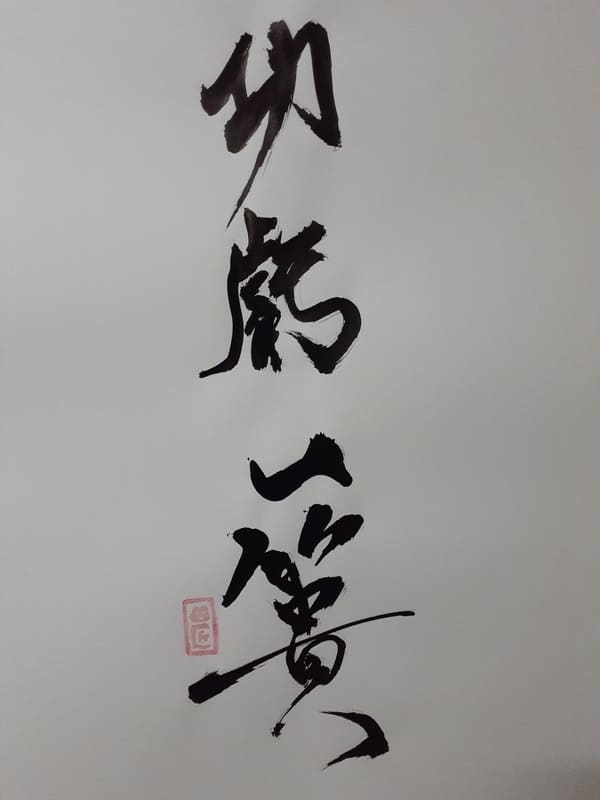 功虧一簣